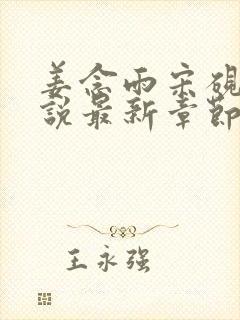 姜念雨宋砚
說最新章節
王永强